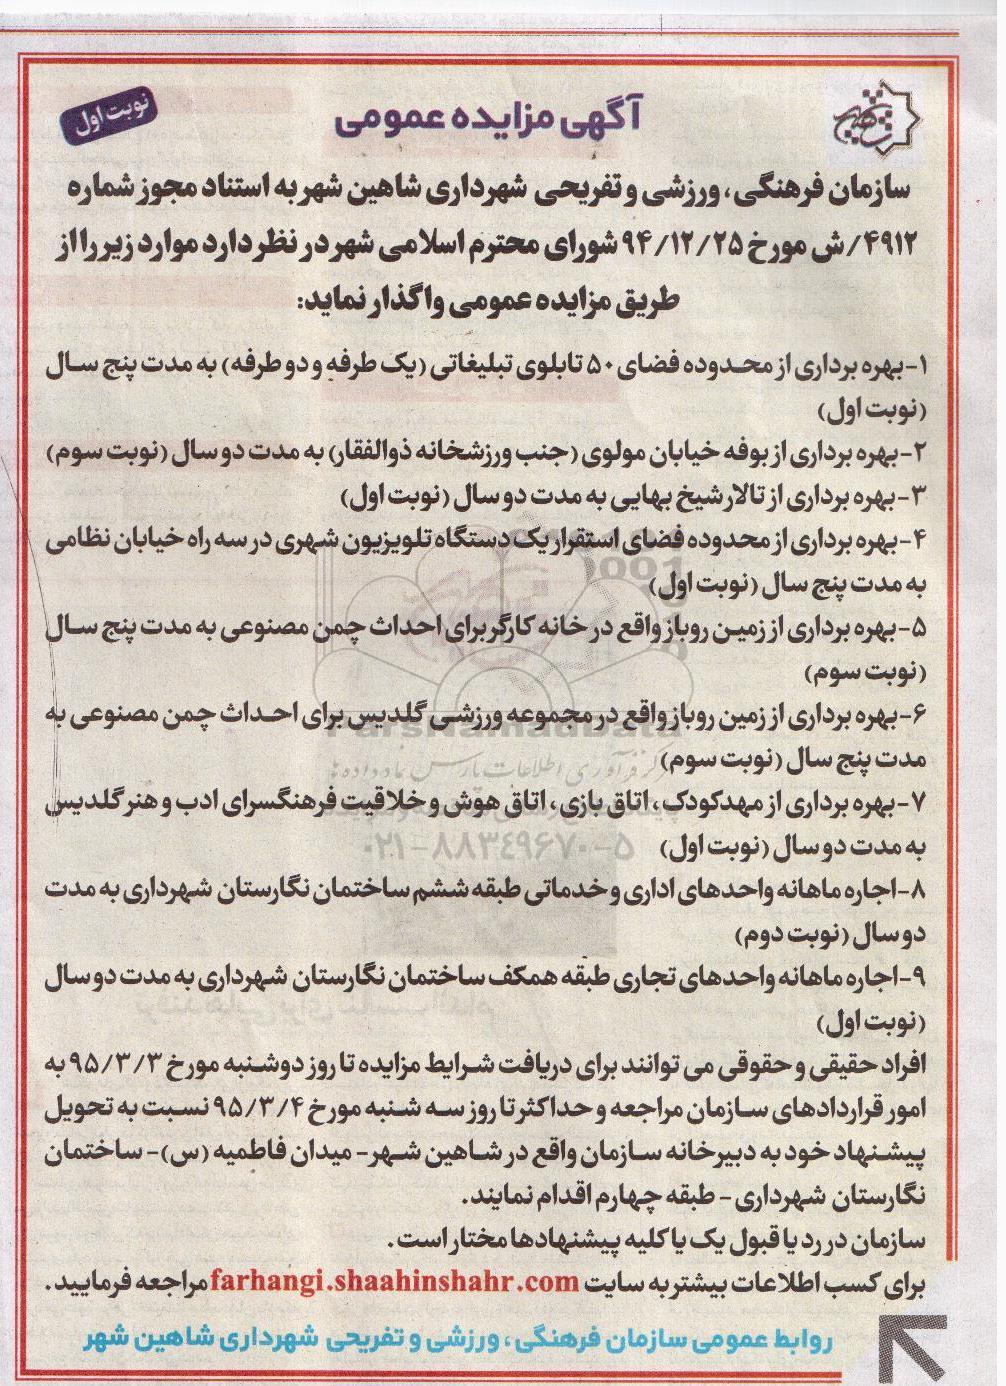 نوبت اول
آگهی مزایده عمومی
سازمان فرهنگی، ورزشی و تفریحی شهرداری شاهین شهر به استناد مجوز شماره
۴۹۱۲/ش مورخ ۹۴/۱۲/۲۵ شورای محترم اسلامی شهر در نظر دارد موارد زیر را از
طریق مزایده عمومی واگذار نماید:
۱-بهره برداری از محدوده فضای ۵۰ تابلوی تبلیغاتی (یک طرفه و دو طرفه) به مدت پنج سال
(نوبت اول)
۲-بهره برداری از بوفه خیابان مولوی (جنب ورزشخانه ذوالفقار) به مدت دو سال (نوبت سوم)
۳-بهره برداری از تالار شیخ بهایی به مدت دو سال (نوبت اول)
۴-بهره برداری از محدوده فضای استقرار یک دستگاه تلویزیون شهری در سه راه خیابان نظامی
به مدت پنج سال (نوبت اول)
۵-بهره برداری از زمین روباز واقع در خانه کارگر برای احداث چمن مصنوعی به مدت پنج سال
(نوبت سوم)
۶-بهره برداری از زمین روباز واقع در مجموعه ورزشی گلدیس برای احداث چمن مصنوعی به
مدت پنج سال (نوبت سوم)
۷-بهره برداری از مهدکودک، اتاق بازی، اتاق هوش و خلاقیت فرهنگسرای ادب و هنر گلدیس
به مدت دو سال (نوبت اول)
۸-اجاره ماهانه واحدهای اداری و خدماتی طبقه ششم ساختمان نگارستان شهرداری به مدت
دو سال (نوبت دوم)
۹-اجاره ماهانه واحدهای تجاری طبقه همکف ساختمان نگارستان شهرداری به مدت دو سال
(نوبت اول)
افراد حقیقی و حقوقی می توانند برای دریافت شرایط مزایده تا روز دوشنبه مورخ ۹۵/۳/۳ به
امور قراردادهای سازمان مراجعه و حداکثر تا روز سه شنبه مورخ ۹۵/۳/۴ نسبت به تحویل
پیشنهاد خود به دبیرخانه سازمان واقع در شاهین شهر- میدان فاطمیه (س)- ساختمان
نگارستان شهرداری - طبقه چهارم اقدام نمایند.
سازمان در رد یا قبول یک یا کلیه پیشنهادها مختار است.
برای کسب اطلاعات بیشتر به سایت farhangi.shaahinshahr.com مراجعه فرمایید.
روابط عمومی سازمان فرهنگی، ورزشی و تفریحی شهرداری شاهین شهر
ParsNamadData
مرکز فرآوری اطلاعات پارس نماد داده ها
۰۲۱-۸۸۳۴۹۶۷۰-۵